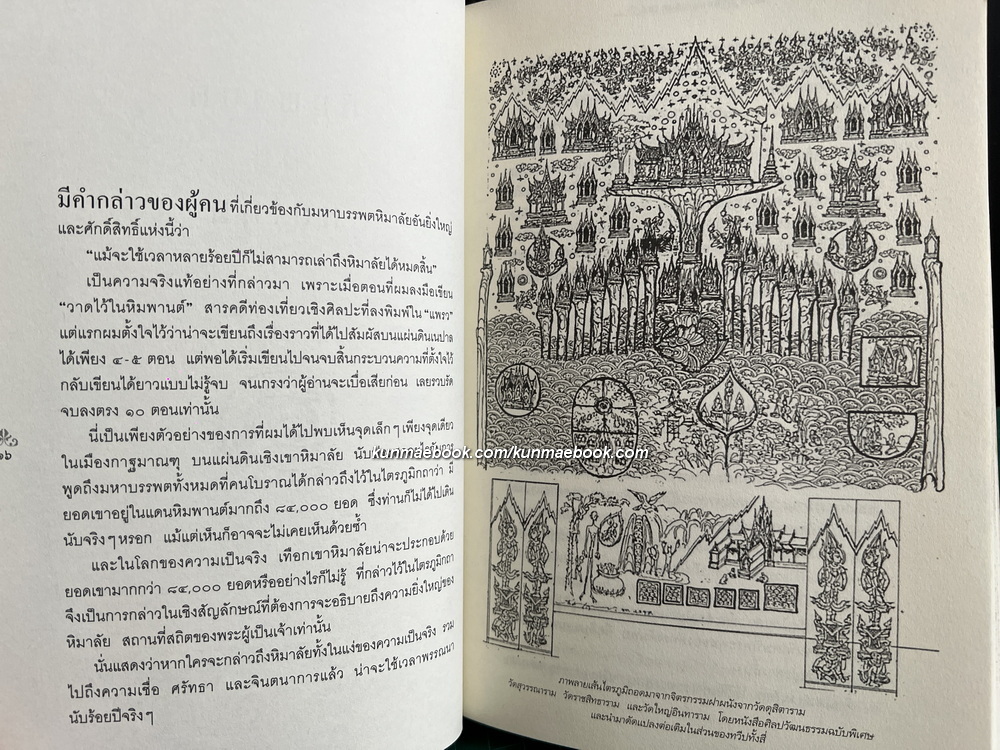 มีคำกล่าวของผู้คน ที่เกี่ยวข้องกับมหาบรรพตหิมาลัยอันยิ่งใหญ่
และศักดิ์สิทธิ์แห่งนี้ว่า
“แม้จะใช้เวลาหลายร้อยปีก็ไม่สามารถเล่าถึงหิมาลัยได้หมดสิ้น”
เป็นความจริงแท้อย่างที่กล่าวมา เพราะเมื่อตอนที่ผมลงมือเขียน
“วาดไว้ในหิมพานต์” สารคดีท่องเที่ยวเชิงศิลปะที่ลงพิมพ์ใน “แพรว”
แต่แรกผมตั้งใจไว้ว่าน่าจะเขียนถึงเรื่องราวที่ได้ไปสัมผัสบนแผ่นดินเนปาล
ได้เพียง ๔-๕ ตอน แต่พอได้เริ่มเขียนไปจนจบสิ้นกระบวนความที่ตั้งใจไว้
กลับเขียนได้ยาวแบบไม่รู้จบ จนเกรงว่าผู้อ่านจะเบื่อเสียก่อน เลยรวบรัด
จบลงตรง ๑๐ ตอนเท่านั้น
นี่เป็นเพียงตัวอย่างของการที่ผมได้ไปพบเห็นจุดเล็กๆ เพียงจุดเดียว
ในเมืองกาฐมาณฑุ บนแผ่นดินเชิงเขาหิมาลัย
kunmaebook.com/kunmaebook.com
พูดถึงมหาบรรพตทั้งหมดที่คนโบราณได้กล่าวถึงไว้ในไตรภูมิกถาว่า มี
ยอดเขาอยู่ในแดนหิมพานต์มากถึง ๘๔,๐๐๐ ยอด ซึ่งท่านก็ไม่ได้ไปเดิน
นับจริงๆ หรอก แม้แต่เห็นก็อาจจะไม่เคยเห็นด้วยซ้ำ
และในโลกของความเป็นจริง เทือกเขาหิมาลัยน่าจะประกอบด้วย
ยอดเขามากกว่า ๘๔,๐๐๐ ยอดหรืออย่างไรก็ไม่รู้ ที่กล่าวไว้ในไตรภูมิกถา
จึงเป็นการกล่าวในเชิงสัญลักษณ์ที่ต้องการจะอธิบายถึงความยิ่งใหญ่ของ
หิมาลัย สถานที่สถิตของพระผู้เป็นเจ้าเท่านั้น
นั่นแสดงว่าหากใครจะกล่าวถึงหิมาลัยทั้งในแง่ของความเป็นจริง รวม
ไปถึงความเชื่อ ศรัทธา และจินตนาการแล้ว น่าจะใช้เวลาพรรณนา
นับร้อยปีจริงๆ
ภาพลายเส้นไตรภูมิถอดมาจากจิตรกรรมฝาผนังจากวัดดุสิตาราม
วัดสุวรรณาราม วัดราชสิทธาราม และวัดใหญ่อินทาราม โดยหนังสือศิลปวัฒนธรรมฉบับพิเศษ
และนำมาดัดแปลงต่อเติมในส่วนของทวีปทั้งสี่